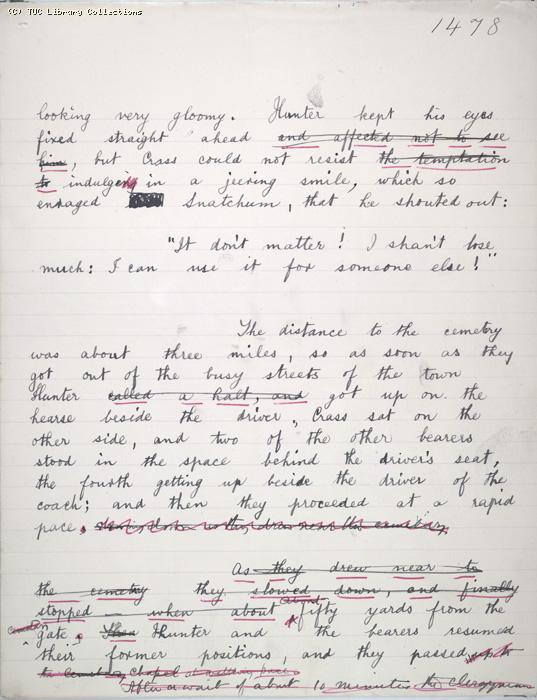 (C) TUC Library Collections
1478
looking very gloomy. Hunter kept his eyes
fixed straight ahead and affected not to see
him, but Crass could not resist the temptation
to indulgeng in a jeering smile, which so
enraged Snatchum, that he shouted out:
"It don't matter! I shan't lose
much: I can use it for someone else!"
The distance to the cemetery
was about three miles, so as soon as they
got out of the busy streets of the town
Hunter called a halt, and got up on the
hearse beside the driver, Crass sat on the
other side, and two of the other bearers
stood in the space behind the driver's seat,
the fourth getting up beside the driver of the
coach; and then they proceeded at a rapid
pace.
As they drew near to
the cemetery they slowed down, and finally
stopped - when about
about
fifty yards from the
gate. Then Hunter and the bearers resumed
their former positions, and they passed
to cemetery chapel at a
After a wait of about 10 minutes the clergyman